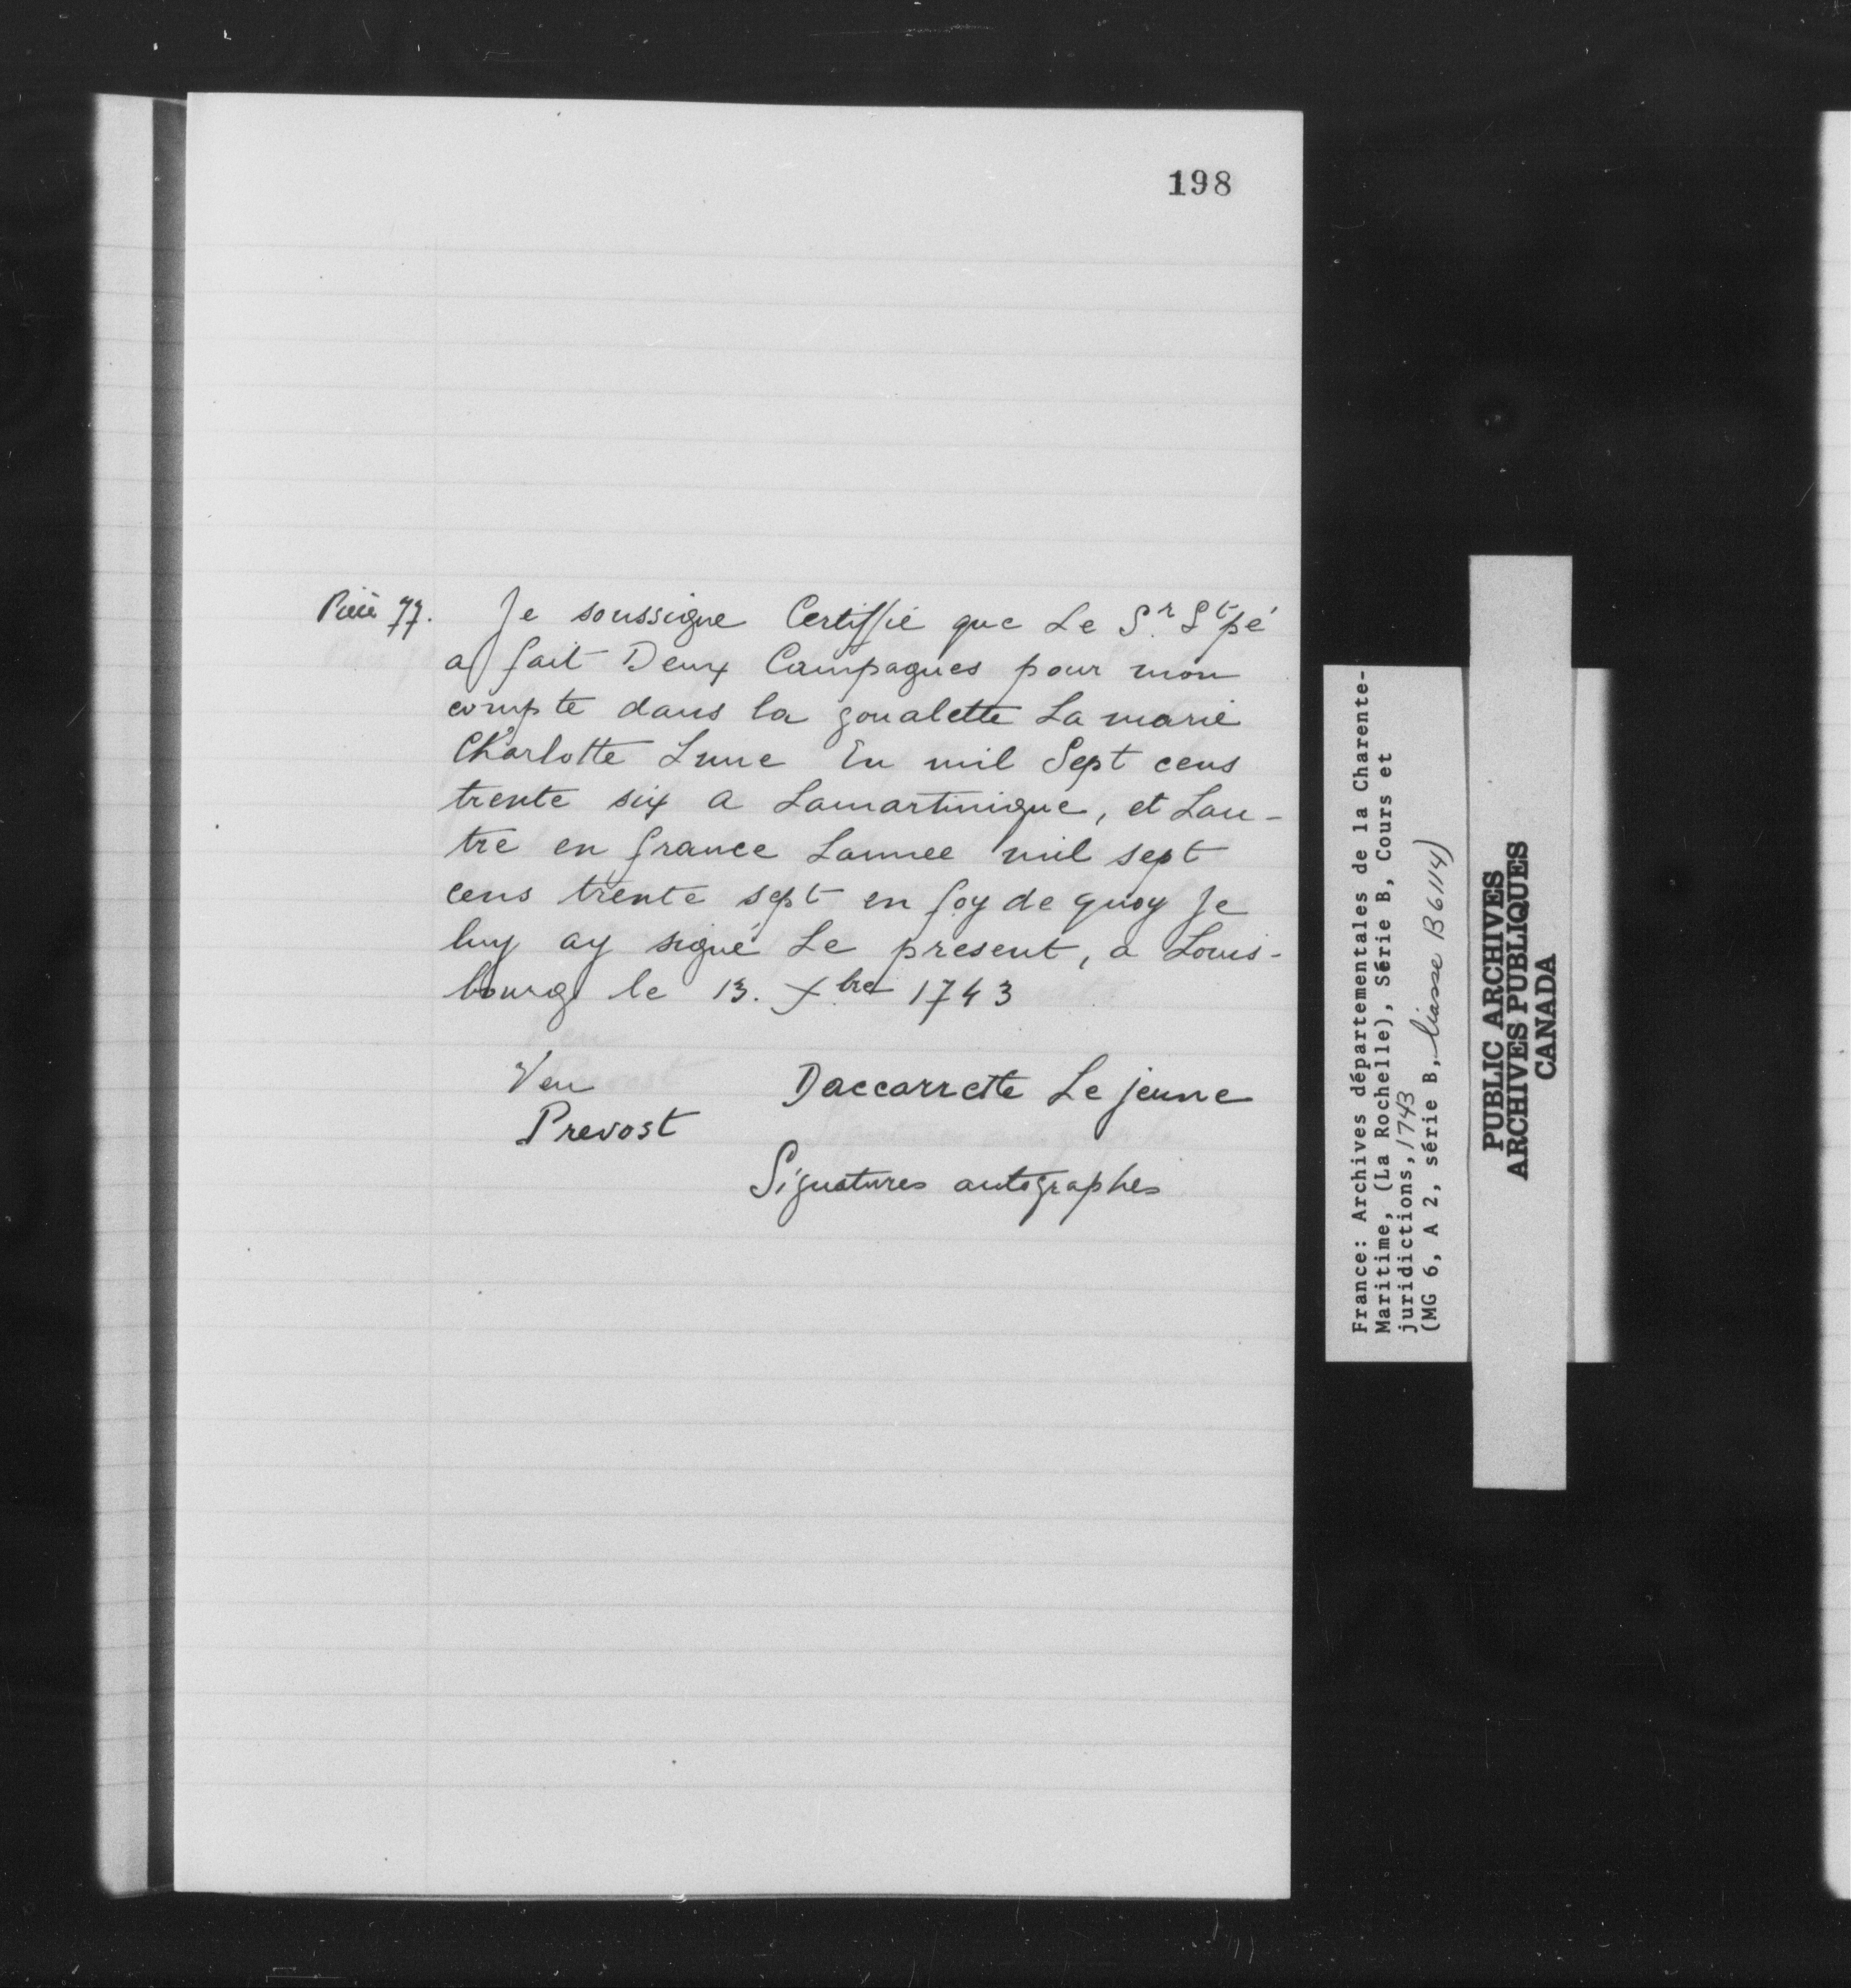 198
Pièce 77. Je soussigne Certiffié que Le Sr. St pé
a fait Deux Campagnes pour mon
compte dans la goualette La marie
Charlotte Lune En mil Sept cens
trente six a Lamartinique, et Lau-
tre en france Lannee mil sept
cens trente sept en foy de quoy Je
luy ay signé Le present, a Louis-
bourg le 13. Xbre 1743
Veu
Prevost
Daccarrette Le jeune
Signatures autographes
France: Archives départementales de la Charente-
Maritime, (La Rochelle), Série B, Cours et
juridictions, 1743
(MG 6, A 2, série B, liasse B6114)
PUBLIC ARCHIVES
ARCHIVES PUBLIQUES
CANADA